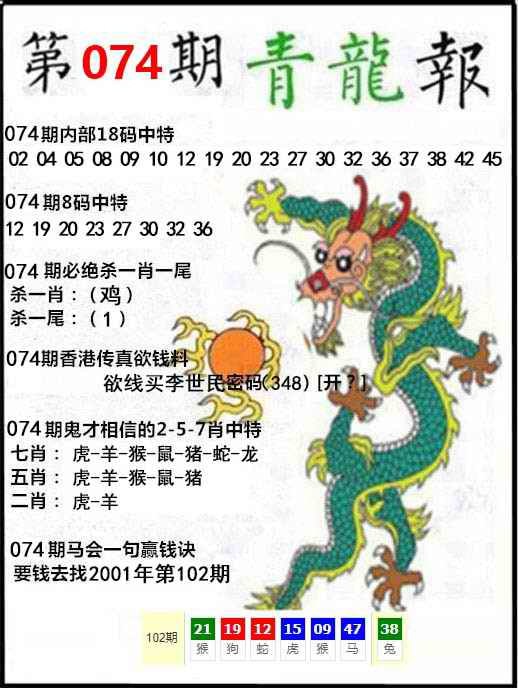 第074期青龍報
074期内部18码中特
02 04 05 08 09 10 12 19 20 23 27 30 32 36 37 38 42 45
074期8码中特
12 19 20 23 27 30 32 36
074 期必绝杀一肖一尾
杀一肖：（鸡）
杀一尾：（1）
074期香港传真欲钱料
欲线买李世民密码(348) [开？]
074期鬼才相信的2-5-7肖中特
七肖：虎-羊-猴-鼠-猪-蛇-龙
五肖：虎-羊-猴-鼠-猪
二肖：虎-羊
074期马会一句赢钱诀
要钱去找2001年第102期
102期 21 19 12 15 09 47 38
猴 狗 蛇 虎 猴 马 兔